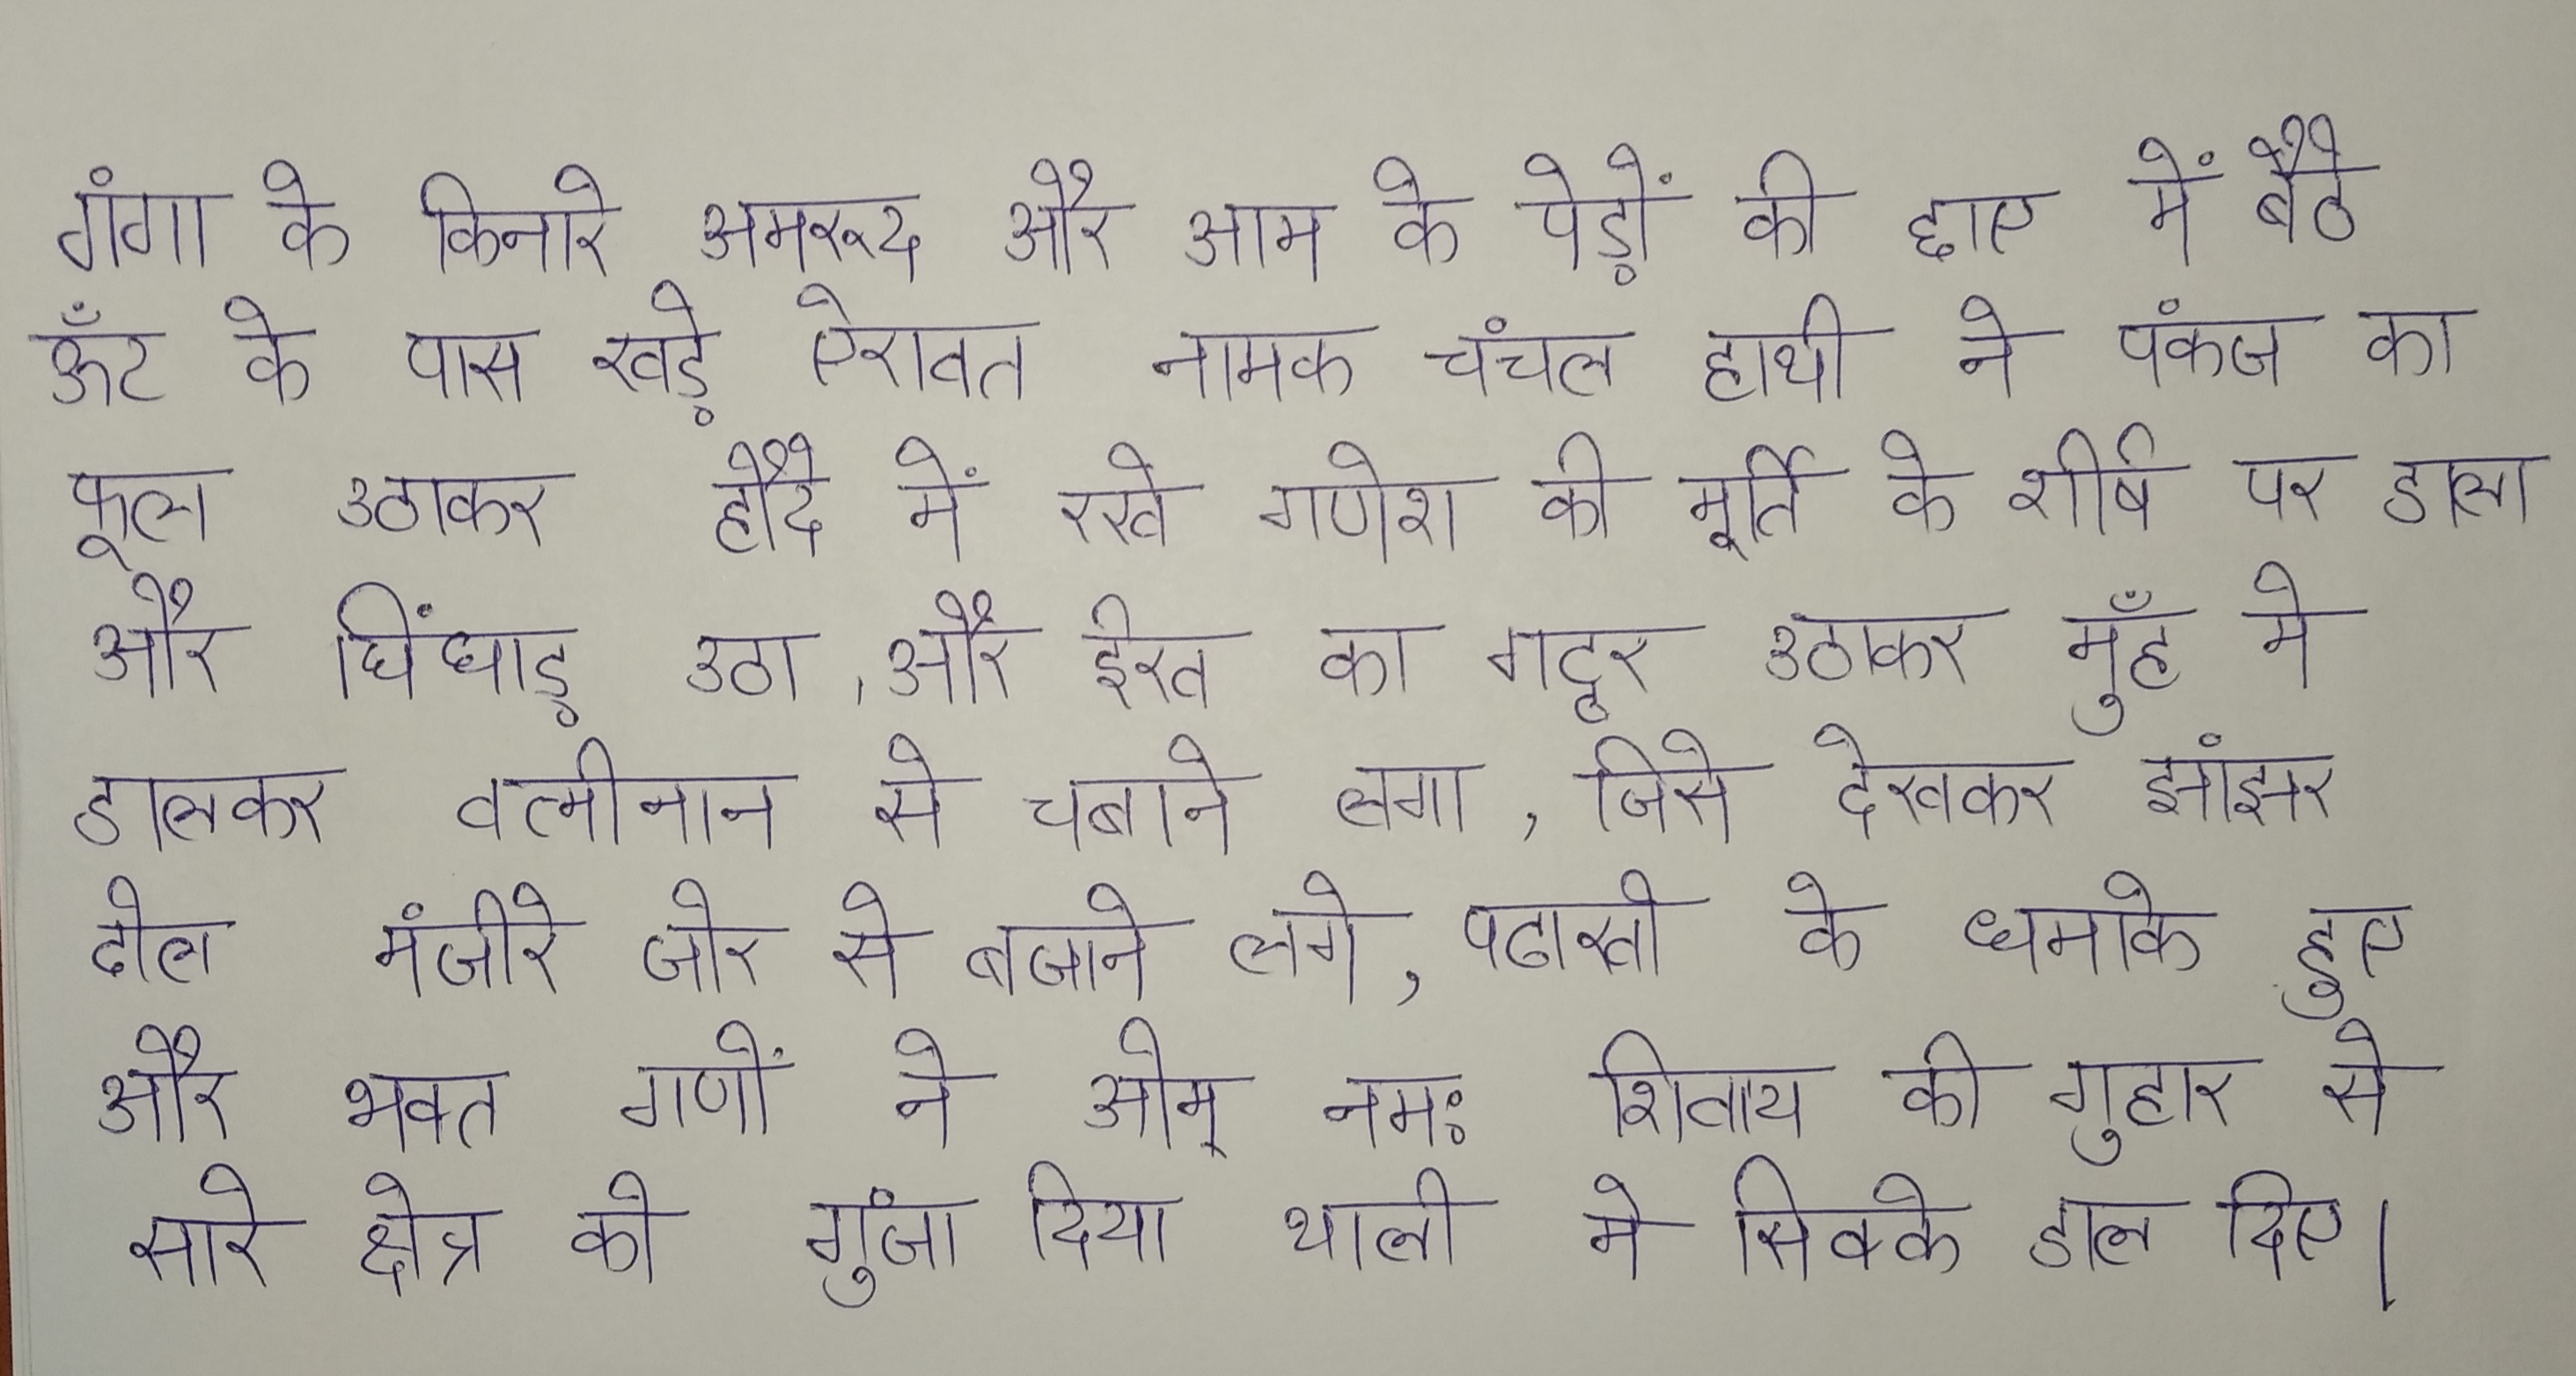 गंगा के किनारे अमरूद और आम के पेड़ों की छाए में बैठे
ऊँट के पास खड़े ऐरावत नामक चंचल हाथी ने पंकज का
फूल उठाकर हौदे में रखे गणेश की मूर्ति के शीर्ष पर डाला
और घिंघाड़ उठा, और ईख का गट्ठर उठाकर मुँह मे
डालकर वत्मीनान से चबाने लगा, जिसे देखकर झांझर
ढोल मंजीरे जोर से बजाने लगे, पटाखो के धमाके हुए
और भक्त गणों ने ओम् नमः शिवाय की गुहार से
सारे क्षेत्र को गुंजा दिया थाली मे सिक्के डाल दिए।